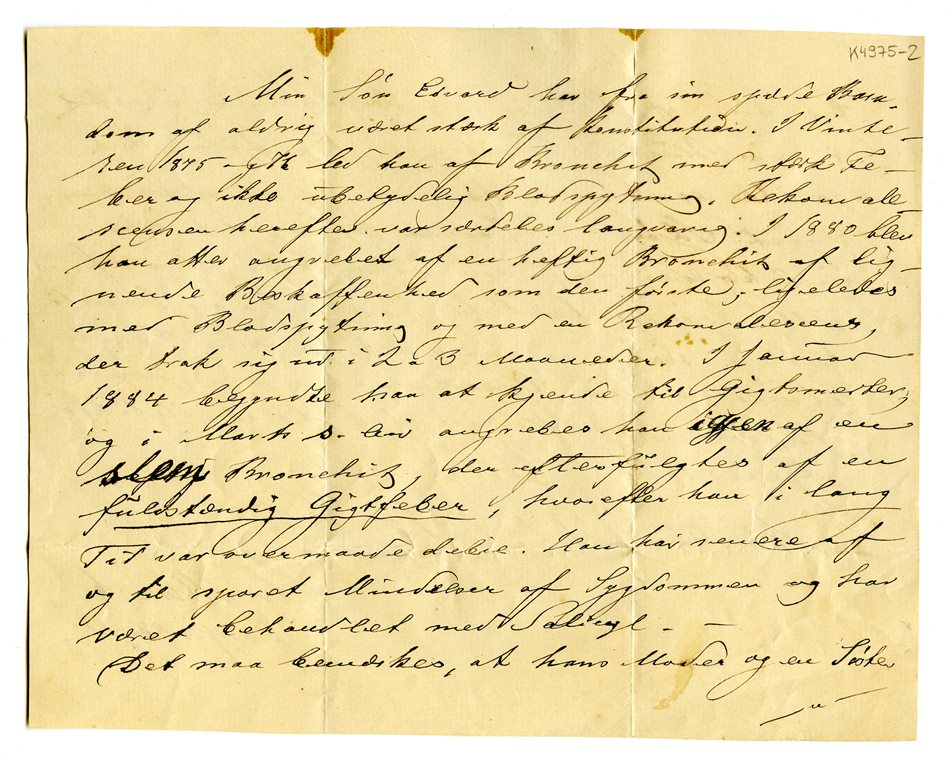 K4975-2
Min Søn Edvard har fra sin spæde Barn-
dom af aldrig været stærk af Konstitution. I Vinte-
ren 1875-76 led han af Bronchit med stærk Fe-
ber og ikke ubetydelig Blodspytning. Rekonvale-
scensen herefter var særdeles langvarig. I 1880 blev
han atter angrebet af en heftig Bronchit af lig-
nende Beskaffenhed som den første, ligeledes
med Blodspytning og med en Rekonvalescens,
der trak sig ud i 2 a 3 Maaneder. I Januar
1884 begyndte han at kjende til Gigtsmerter,
og i Marts s. Aar angrebes han igjen af en
slem Bronchit, der efterfulgtes af en
fuldstændig Gigtfeber, hvorefter han i lang
Tid var overmaade debil. Han har senere af
og til sporet Mindelser af Sygdommen og har
været behandlet med Salicyl. -
Det maa bemærkes, at hans Moder og en Søster